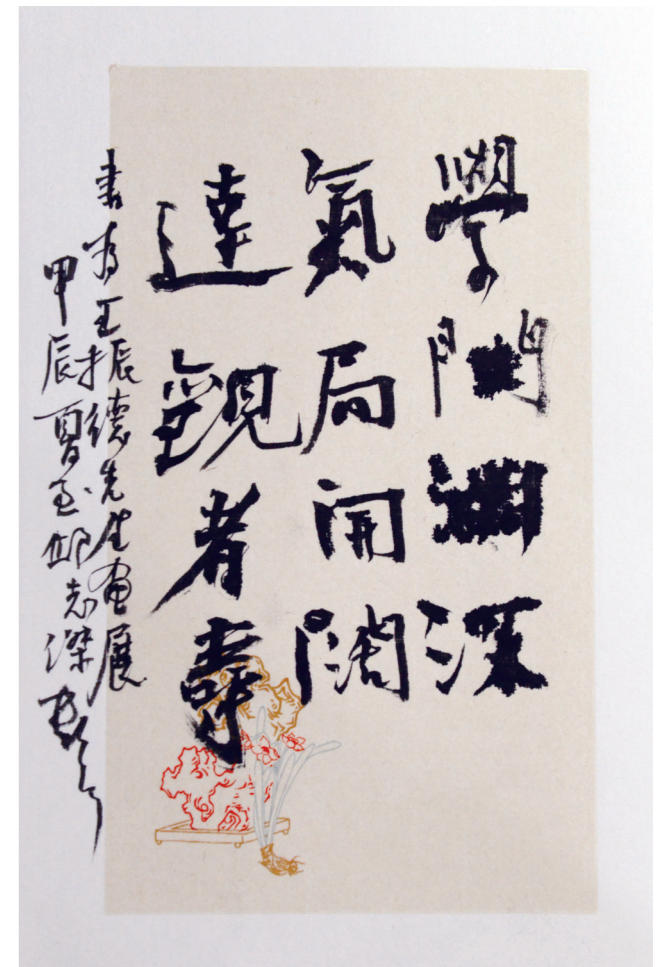 學問淵深
氣局開闊
達觀者壽
書為王振德先生畫展
甲辰夏至邱志傑